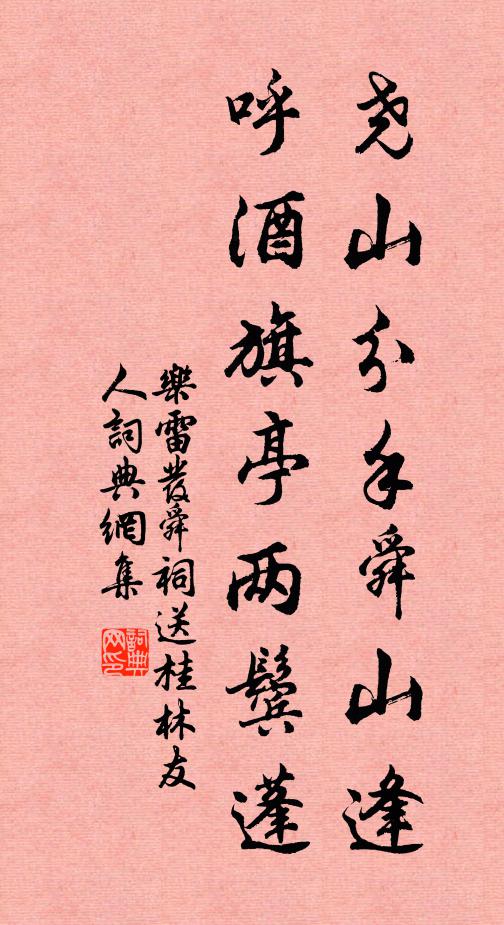 尧山分手舜山逢
呼酒旗亭两鬓蓬
樂雷發舜祠送桂林友
人詞典網集
詞典
网印